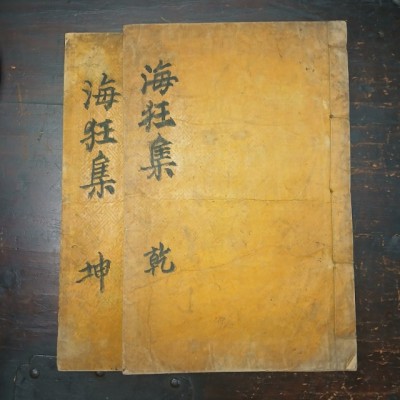 海狂集 乾
海狂集 坤